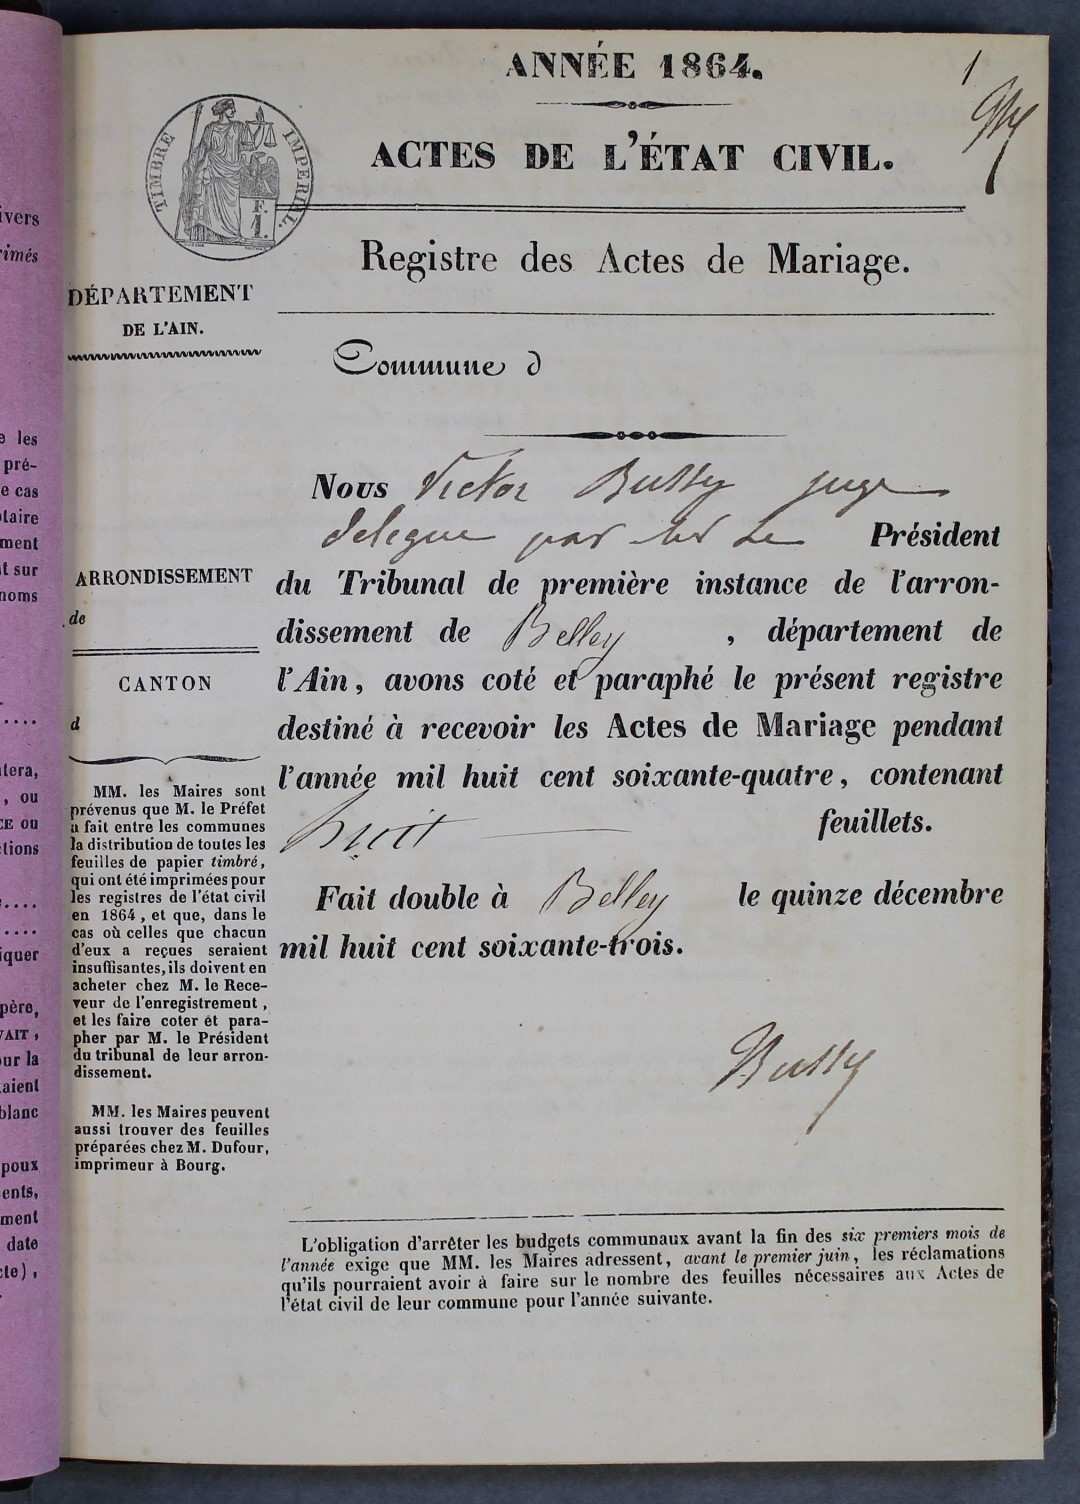 ivers
rimés
e les
pré-
e cas
otaire
ment
t sur
noms
....
tera,
, ou
CE ou
ctions
....
.....
iquer
père,
VAIT,
our la
aient
blanc
poux
ents,
ment
date
cte),
1
ANNÉE 1864.
ACTES DE L'ÉTAT CIVIL.
TIMBRE IMPERIAL.
F.
1.
Registre des Actes de Mariage.
DÉPARTEMENT
DE L'AIN.
Commune d
ARRONDISSEMENT
de
CANTON
d
MM. les Maires sont
prévenus que M. le Préfet
a fait entre les communes
la distribution de toutes les
feuilles de papier timbré,
qui ont été imprimées pour
les registres de l'état civil
en 1864, et que, dans le
cas où celles que chacun
d'eux a reçues seraient
insuffisantes, ils doivent en
acheter chez M. le Rece-
veur de l'enregistrement,
et les faire coter et para-
pher par M. le Président
du tribunal de leur arron-
dissement.
MM. les Maires peuvent
aussi trouver des feuilles
préparées chez M. Dufour,
imprimeur à Bourg.
Nous Victor Bussy juge
delegue par Mr Le Président
du Tribunal de première instance de l'arron-
dissement de Belley, département de
l'Ain, avons coté et paraphé le présent registre
destiné à recevoir les Actes de Mariage pendant
l'année mil huit cent soixante-quatre, contenant
huit feuillets.
Fait double à Belley le quinze décembre
mil huit cent soixante-trois.
Bussy
L'obligation d'arrêter les budgets communaux avant la fin des six premiers mois de
l'année exige que MM. les Maires adressent, avant le premier juin, les réclamations
qu'ils pourraient avoir à faire sur le nombre des feuilles nécessaires aux Actes de
l'état civil de leur commune pour l'année suivante.